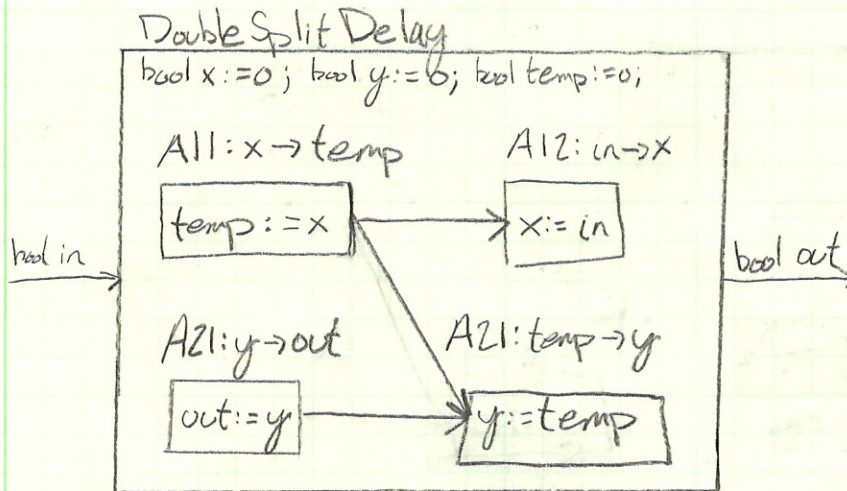 Double Split Delay
bool x:=0; bool y:=0; bool temp:=0;
A11: x→temp
A12: in→x
temp:=x
x:=in
bool in
bool out
A21: y→out
A21: temp→y
out:=y
y:=temp